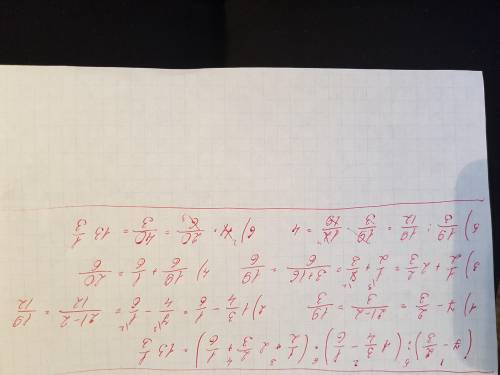 (7 - 2/3) : (1 3/4 - 1/6) · (1/2 + 2 2/3 + 1/6) = 13 1/3
1) 7 - 2/3 = 21-2/3 = 19/3 2) 1 3/4 - 1/6 = 7/4 - 1/6 = 21-2/12 = 19/12
3) 1/2 + 2 2/3 = 1/2 + 8/3 = 3+16/6 = 19/6 4) 19/6 + 1/6 = 20/6
5) 19/3 : 19/12 = 19/3 · 12/19 = 4 6) 4 · 20/6 = 40/3 = 13 1/3